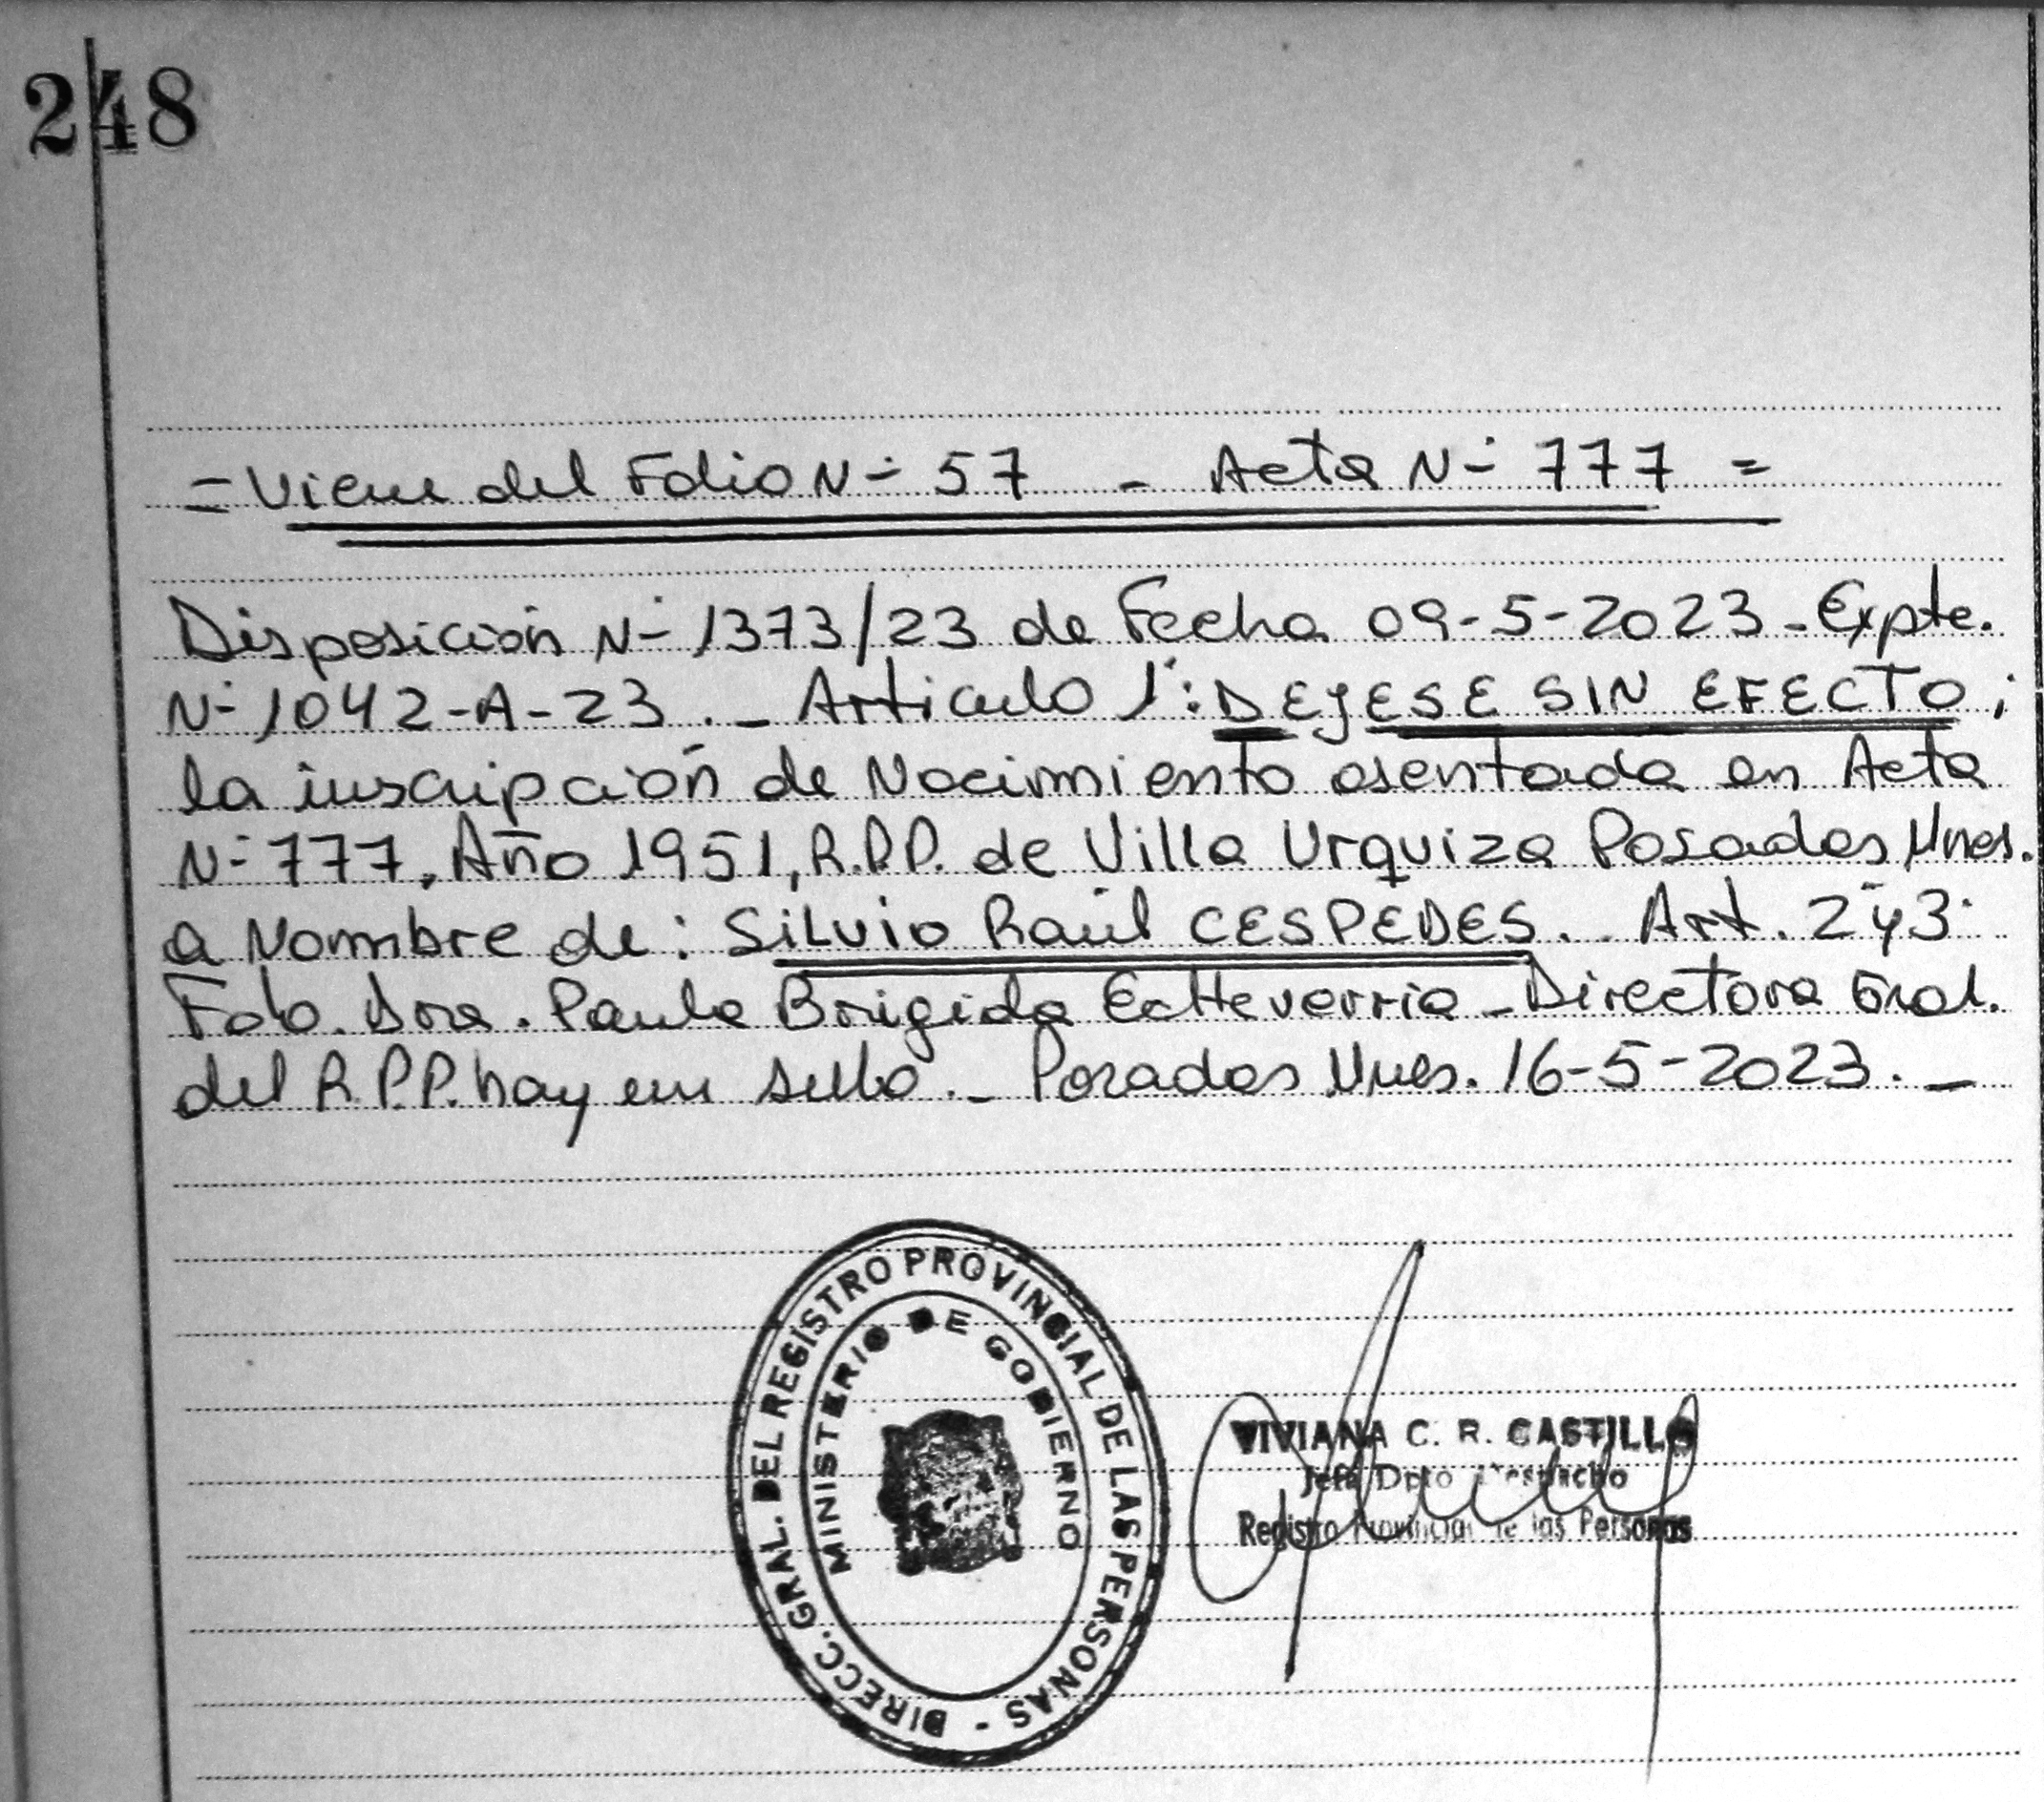 248
= Viene del Folio Nº 57 - Acta Nº 777 =
Disposición Nº 1373/23 de Fecha 09-5-2023 - Expte.
Nº 1042-A-23. - Articulo 1º: DEJESE SIN EFECTO;
la inscripción de Nacimiento asentada en Acta
Nº 777, Año 1951, R.P.P. de Villa Urquiza Posadas Mnes.
a Nombre de: SILVIO Raúl CESPEDES. Art. 2º y 3º
Fdo. Dra. Paula Brigida Echeverria - Directora Gral.
del R.P.P. hay un sello. - Posadas Mnes. 16-5-2023. -
DIRECC. GRAL. DEL REGISTRO PROVINCIAL DE LAS PERSONAS -
MINISTERIO DE GOBIERNO
VIVIANA C. R. CASTILLO
Jefa Dpto Despacho
Registro Provincial de las Personas